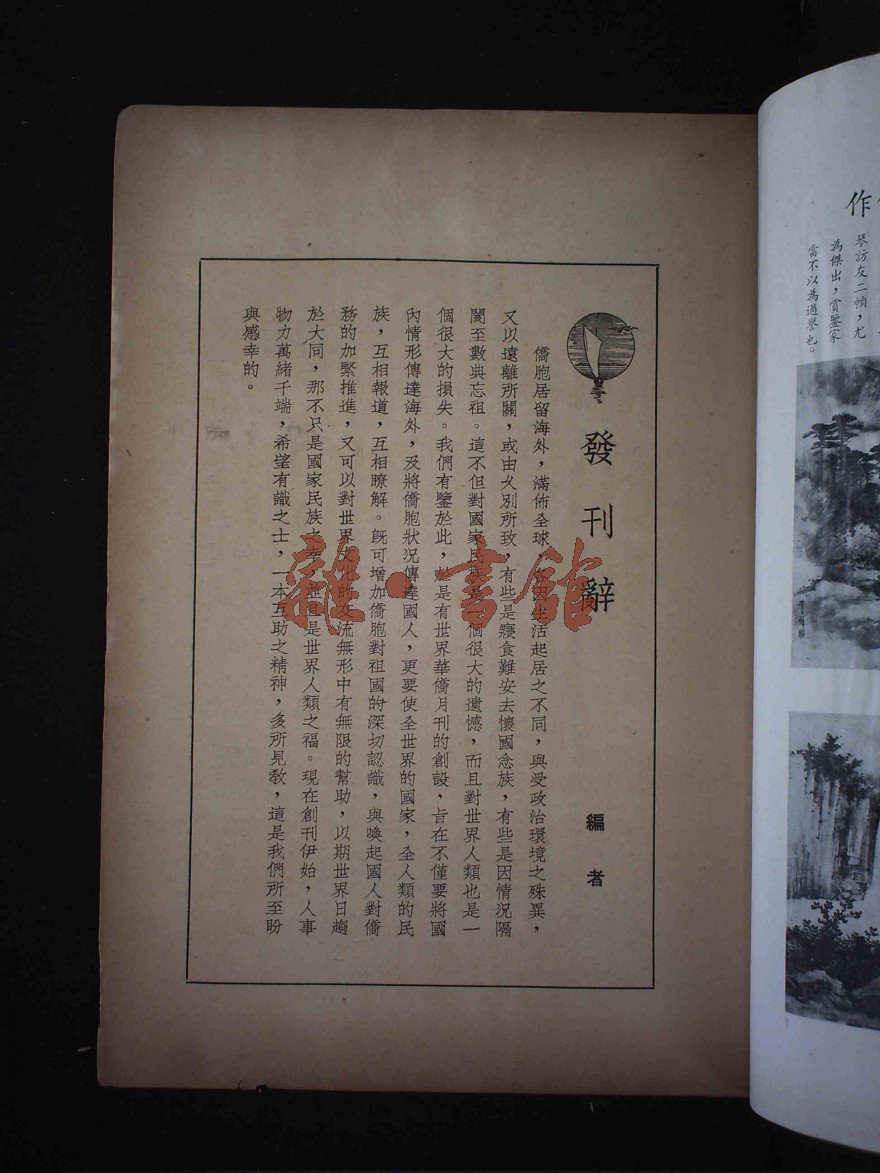 發刊辭
編者
僑胞居留海外，滿佈全球，各因生活起居之不同，與受政治環境之殊異，
又以遠離所關，或由久別所致，有些是寢食難安去懷國念族，有些是因情況隔
閡至數典忘祖。這不但對國家民族是一個很大的遺憾，而且對世界人類也是一
個很大的損失。我們有鑒於此，於是有世界華僑月刊的創設，旨在不僅要將國
內情形傳達海外，及將僑胞狀况傳達國人，更要使全世界的國家，全人類的民
族，互相報道，互相瞭解。既可增加僑胞對祖國的深切認識，與喚起國人對僑
務的加緊推進，又可以對世界文化的交流無形中有無限的幫助，以期世界日趨
於大同，那不只是國家民族之幸，並且是世界人類之福。現在創刊伊始，人事
物力萬緒千端，希望有識之士，一本互助之精神，多所見教，這是我們所至盼
與感幸的。
雜·書館
作
琴訪友二幀，尤
為傑出，賞鑒家
當不以為過譽也。